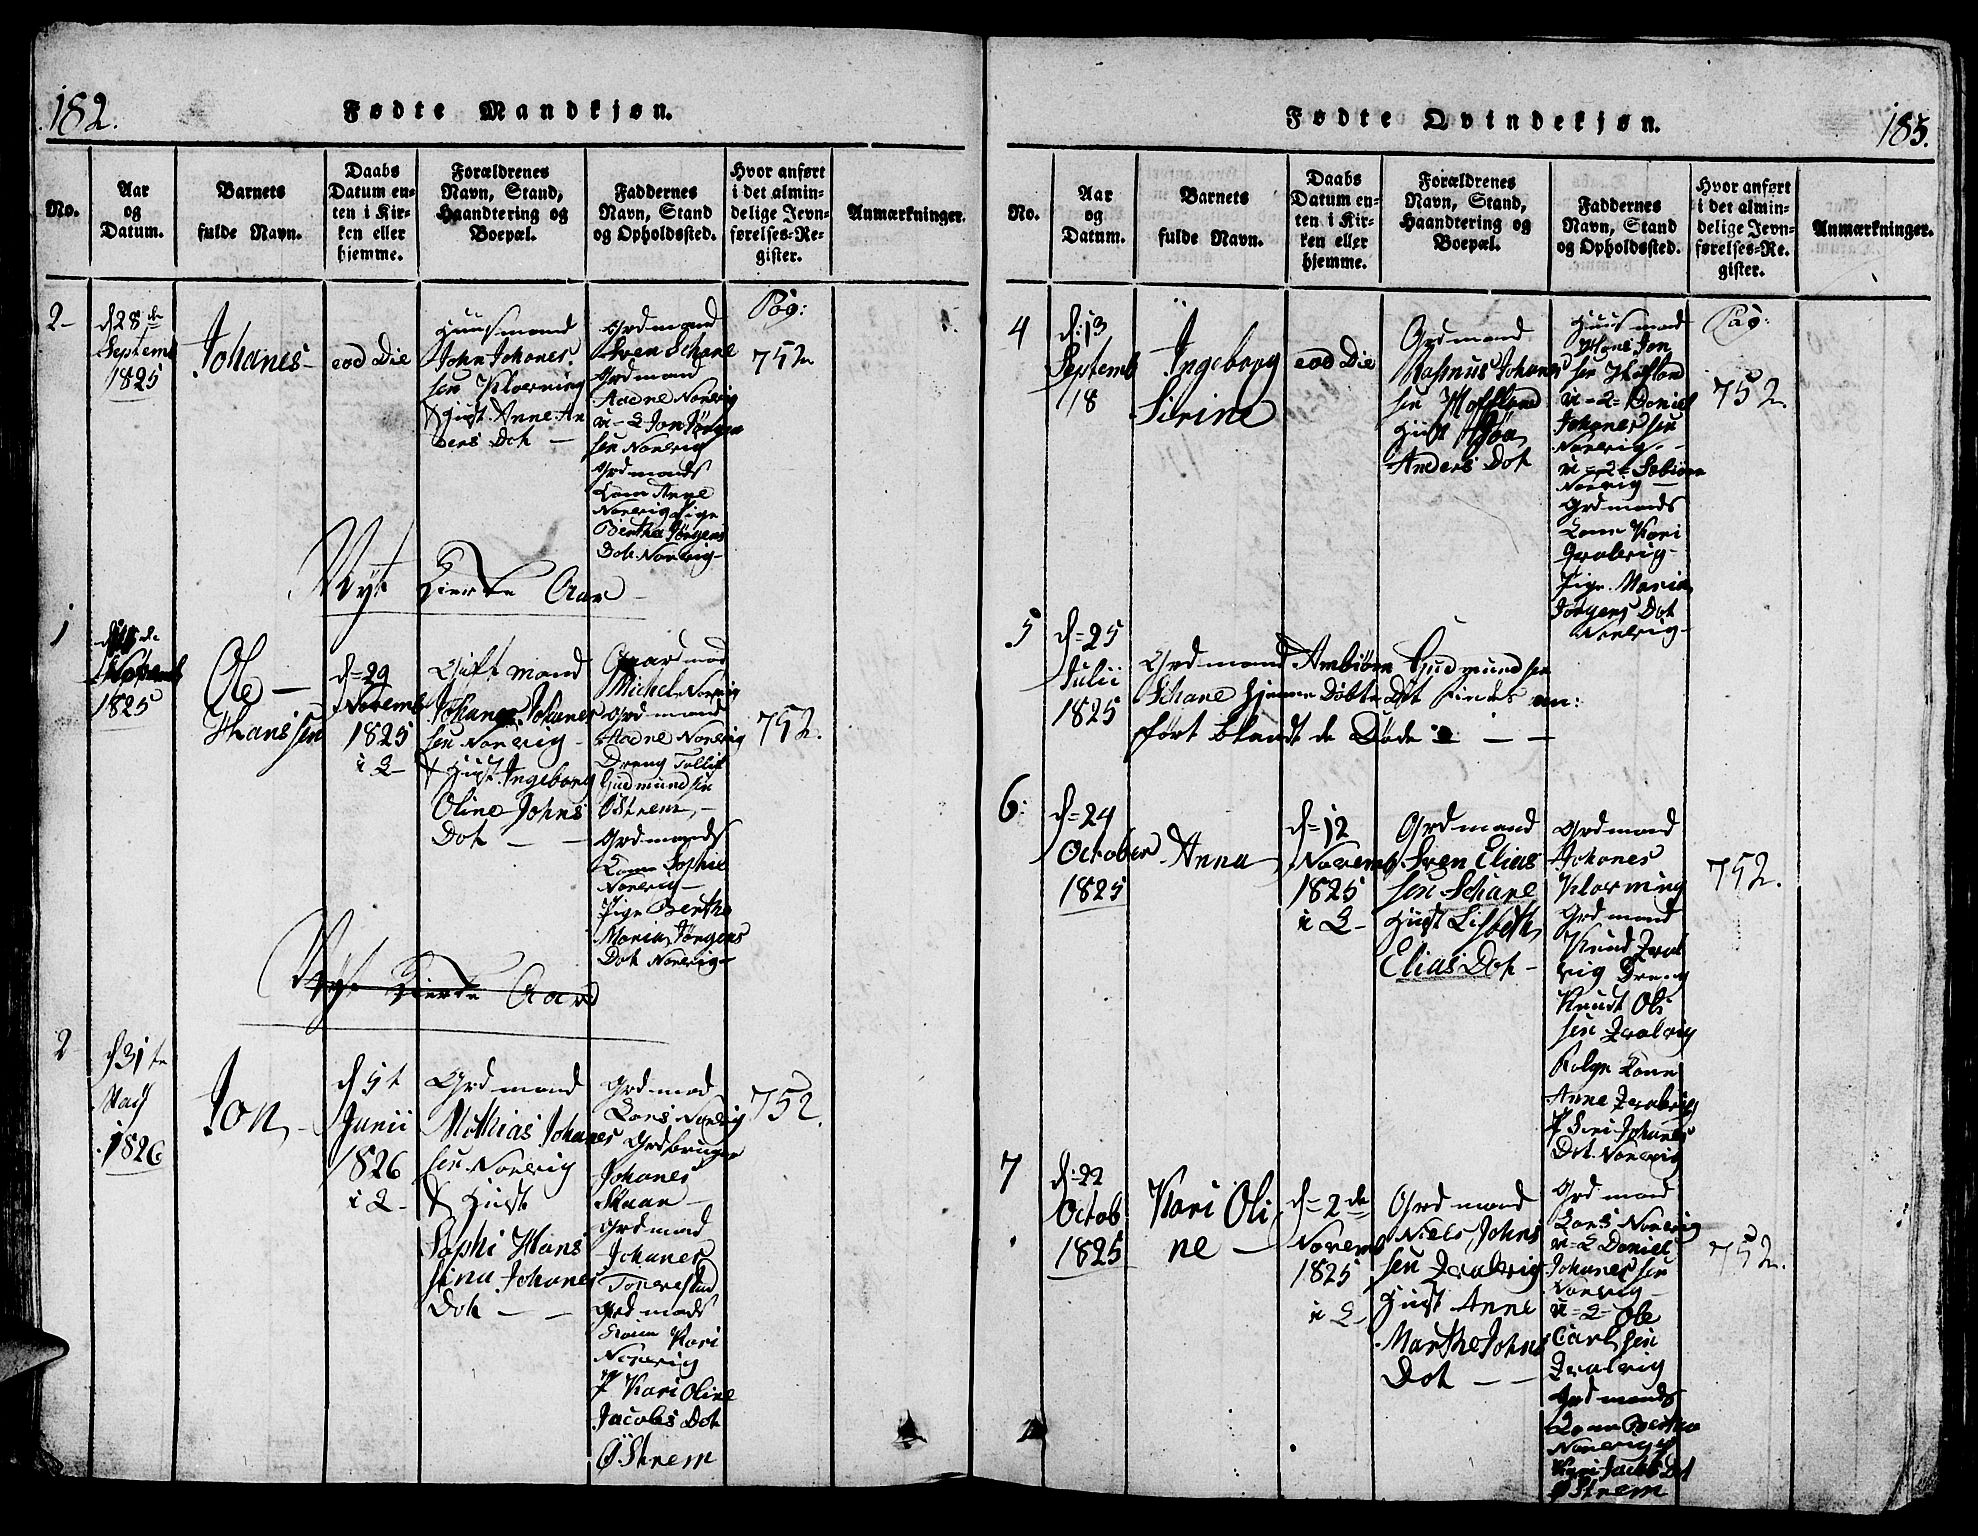 182.
Fødte Mandkjøn.
No.
Aar
og
Datum.
Barnets
fulde Navn.
Daabs
Datum en-
ten i Kir-
ken eller
hjemme.
Forældrenes
Navn, Stand,
Haandtering og
Boepæl.
Faddernes
Navn, Stand
og Opholdssted.
Hvor anført
i det almin-
delige Jevn-
førelses-Re-
gister.
Anmærkninger.
2
d 28de
Septemb
1825
Johanes
eod Die
Huusmand
John Johanes
sen Kløvning
& Hust. Anne An
ders Dot
Grdmand
Sven Schare
Grdmand
Aadne Norvig
u-2 Jon Jørgen
sen Norvig
Grdmands
Kone Anne
Norvig Pige
Bertha Jørgens
Dot. Norvig
Pag:
752
Nyt Kierke Aar
1
1825
Ole
Hanssen
d=29
Novemb
1825
i K
Gift mand
Johanes Johanes
sen Norvig
& Hust. Ingeborg
Oline Johns
Dot
Gaardmad
Michel Norvig
Grdmand
Aadne Norvig
Dreng Tollif
Gudmundsen
Østrem
Grdmands
Kone Sophie
Norvig
Pige Berthe
Maria Jørgens
Dot Norvig
752.
Nyt Kierke Aar
2
d 31te
May
1826
Jon
d 5t
Junii
1826
i K
Grdmand
Mathias Johanes
sen Norvig
& Hust
Sophi Hans
sina Johanes
Dot
Grdmad
Lars Norvig
Grdbruger
Johanes
Skaar
Grdmad
Johanes
Toverstad
Grdmads
Kone Kari
Norvig
P Kari Oline
Jacobs Dot
Østrem
752.
185.
Fødte Qvindekjøn.
No.
Aar
og
Datum.
Barnets
fulde Navn.
Daabs
Datum en-
ten i Kir-
ken eller
hjemme.
Forældrenes
Navn, Stand,
Haandtering og
Boepæl.
Faddernes
Navn, Stand
og Opholdssted.
Hvor anført
i det almin-
delige Jevn-
førelses-Re-
gister.
Anmærkninger.
4
d:13
Septemb
18
Ingeborg
Sirine
eod Die
Grdmand
Rasmus Johanes
sen
Hust
Anders Dot
Huusmad
Hans Jon
sen
u-2- Daniel
Johanes sen
Norvig
u-2-
Norvig
Grdmands
Kone Kari
Qvalevig
Pige Maria
Jørgens Dot
Norvig
Pag:
752
5
d=25
Julii
1825
Grdmand Ambiørn Gudmundsen
Schare hjemme Døbte Dot findes an:
ført blandt de Døde
6:
d=24
October
1825
Anna
d=12
Novemb
1825
i K
Grdmand
Sven Elias
sen Schare
Hust Lisbeth
Elias Dot
Grdmand
Johanes
Kløvning
Grdmand
Knud Qval
vig Dreng
Knudt Ols
sen Qvalvig
Kone
Anne Qvalvig
P Siri Johanes
Dot. Norvig
752.
7
d:22
Octob
1825
Kari Oli
ne
d=2de
Novemb
1825
i K
Grdmand
Niels Johns
sen Qvalevig
Hust Anne
Marthe Johns
Dot
Grdmand
Lars Norvig
u=2 Daniel
Johanes sen
Norvig
u=2= Ole
Carl sen
Qvalvig
Grdmands
Kone Bertha
Norvig P
Kari Jacobs Dot
Østrem
752.